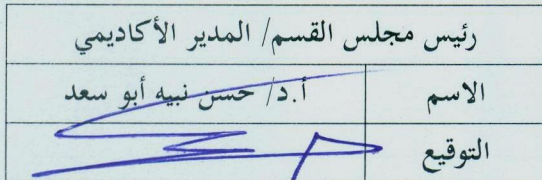 رئيس مجلس القسم/ المدير الأكاديمي
الاسم أ.د/ حسن نبيه أبو سعد
التوقيع